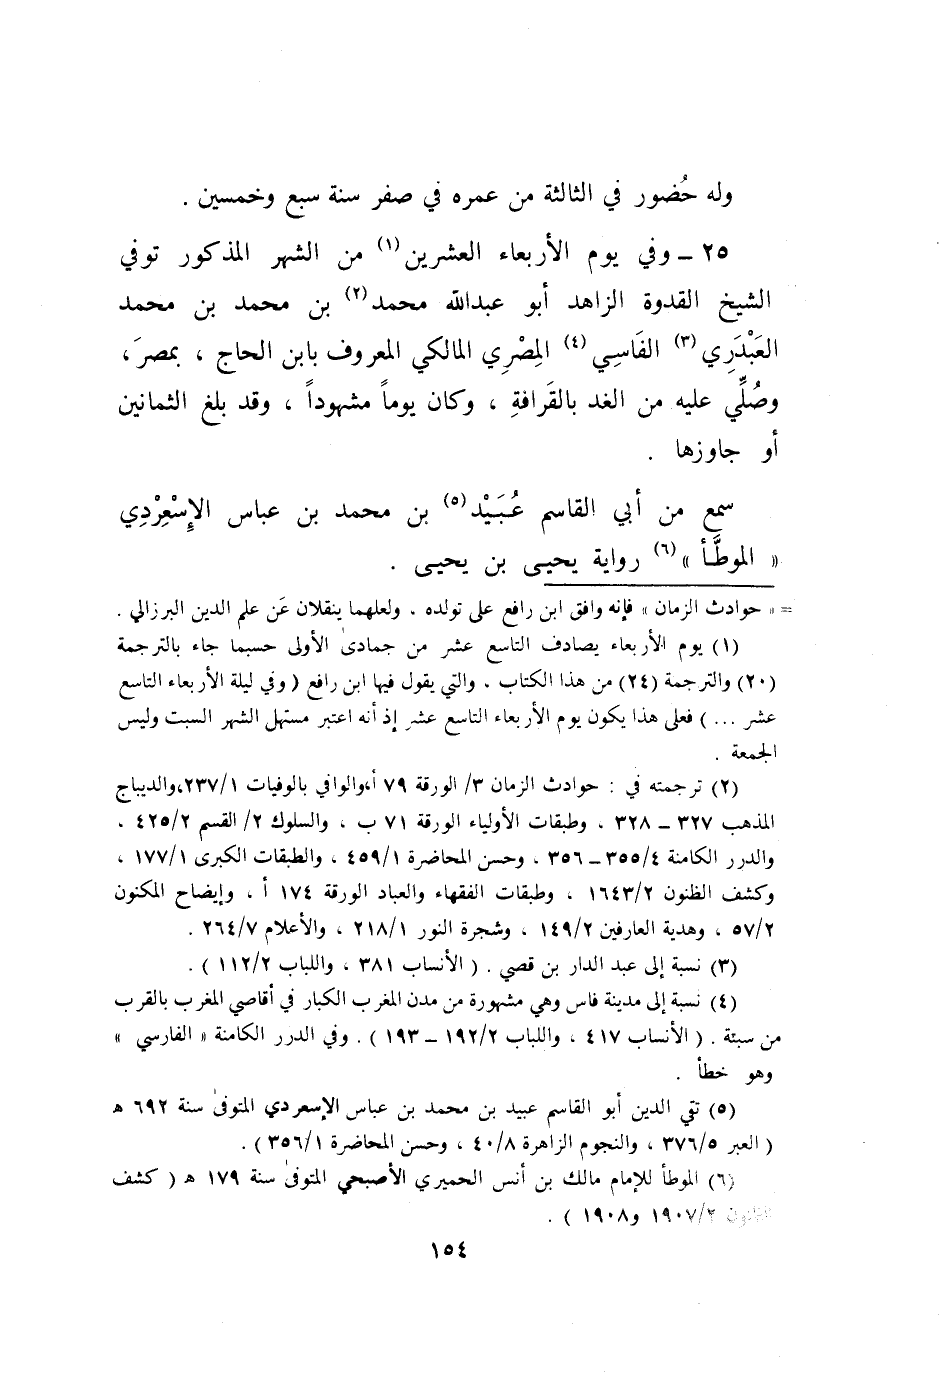 وله حُضور في الثالثة من عمره في صفر سنة سبع وخمسين .
٢٥ ـ وفي يوم الأربعاء العشرين(١) من الشهر المذكور توفي
الشيخ القدوة الزاهد أبو عبدالله محمد(٢) بن محمد بن محمد
العَبْدَرِي(٣) الفَاسِي(٤) المِصْرِي المالكي المعروف بابن الحاج ، بمصرَ ،
وصُلِّي عليه من الغد بالقَرافةِ ، وكان يوماً مشهوداً ، وقد بلغ الثمانين
أو جاوزها .
سمع من أبي القاسم عُبَيْد(٥) بن محمد بن عباس الإِسْعِرْدِي
« الموطَّأ »(٦) رواية يحيى بن يحيى .
= « حوادث الزمان » فإنه وافق ابن رافع على تولده . ولعلهما ينقلان عَن علم الدين البرزالي .
(١) يوم الأربعاء يصادف التاسع عشر من جمادىٰ الأولى حسبما جاء بالترجمة
(٢٠) والترجمة (٢٤) من هذا الكتاب . والتي يقول فيها ابن رافع ( وفي ليلة الأربعاء التاسع
عشر ... ) فعلى هذا يكون يوم الأربعاء التاسع عشر إذ أنه اعتبر مستهل الشهر السبت وليس
الجمعة .
(٢) ترجمته في : حوادث الزمان ٣/ الورقة ٧٩ أ،والوافي بالوفيات ٢٣٧/١،والديباج
المذهب ٣٢٧ ـ ٣٢٨ . وطبقات الأولياء الورقة ٧١ ب ، والسلوك ٢/ القسم ٤٢٥/٢ .
والدرر الكامنة ٣٥٥/٤ ـ ٣٥٦ ، وحسن المحاضرة ٤٥٩/١ ، والطبقات الكبرى ١٧٧/١ ،
وكشف الظنون ١٦٤٣/٢ ، وطبقات الفقهاء والعباد الورقة ١٧٤ أ ، وإيضاح المكنون
٥٧/٢ ، وهدية العارفين ١٤٩/٢ ، وشجرة النور ٢١٨/١ ، والأعلام ٢٦٤/٧ .
(٣) نسبة إلى عبد الدار بن قصي . ( الأنساب ٣٨١ ، واللباب ١١٢/٢ ) .
(٤) نسبة إلى مدينة فاس وهي مشهورة من مدن المغرب الكبار في أقاصي المغرب بالقرب
من سبتة . ( الأنساب ٤١٧ ، واللباب ١٩٢/٢ ـ ١٩٣ ) . وفي الدرر الكامنة « الفارسي »
وهو خطأ .
(٥) تقي الدين أبو القاسم عبيد بن محمد بن عباس الإسعردي المتوفىٰ سنة ٦٩٢ ه
( العبر ٣٧٦/٥ ، والنجوم الزاهرة ٤٠/٨ ، وحسن المحاضرة ٣٥٦/١ ) .
(٦) الموطأ للإمام مالك بن أنس الحميري الأصبحي المتوفىٰ سنة ١٧٩ ه ( كشف
الظنون ١٩٠٧/٢ و١٩٠٨ ) .
١٥٤